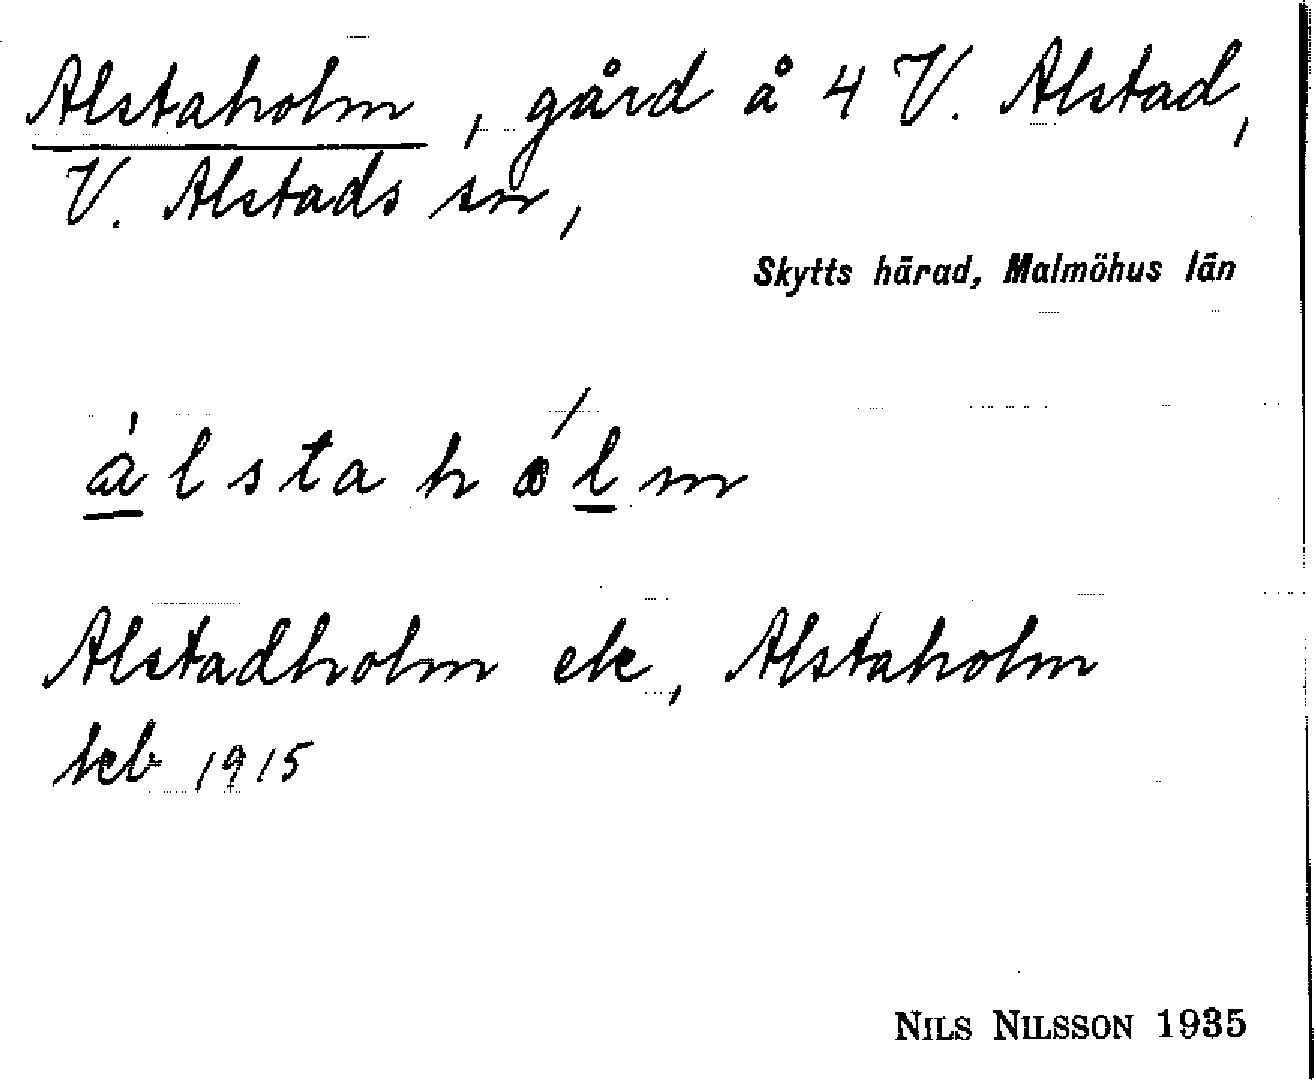 Alstaholm, gård å 4 V. Alstad,
V. Alstads sn,
Skytts härad, Malmöhus län
álstahólm
Alstadholm ek, Alstaholm
kcb 1915
NILS NILSSON 1935